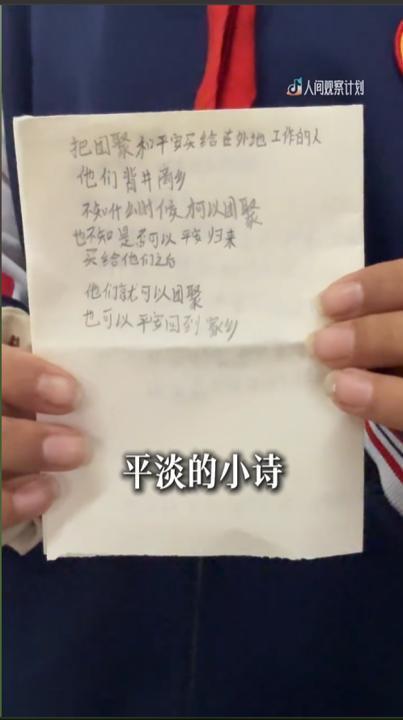 人间观察计划
把团聚和平安买给在外地工作的人
他们背井离乡
不知什么时候可以团聚
也不知是否可以平安归来
买给他们之后
他们就可以团聚
也可以平安回到家乡
平淡的小诗